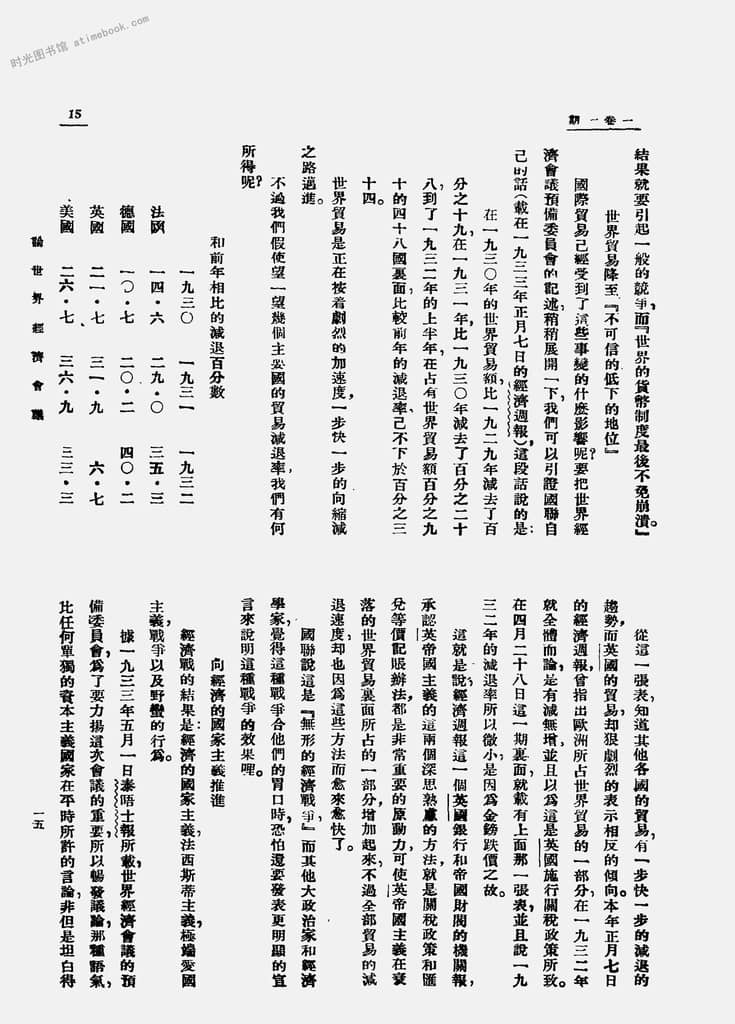 时光图书馆 atimebook.com
15
一卷一期
結果就要引起一般的競爭,而『世界的貨幣制度最後不免崩潰。』
世界貿易降至『不可信的低下的地位』
國際貿易已經受到了這些事變的什麼影響呢?要把世界經
濟會議預備委員會的記述,稍稍展開一下,我們可以引證國聯自
己的話(載在一九三三年正月七日的經濟週報),這段話說的是:
在一九三〇年的世界貿易額,比一九二九年減去了百
分之十九,在一九三一年,比一九三〇年減去了百分之二十
八,到了一九三二年的上半年,在占有世界貿易額百分之九
十的四十八國裏面,比較前年的減退率,己不下於百分之三
十四。
世界貿易是正在按着劇烈的加速度,一步快一步的向縮減
之路邁進。
不過我們假使望一望幾個主要國的貿易減退率,我們有何
所得呢?
和前年相比的減退百分數
一九三〇 一九三一 一九三二
法國 一四·六 二九·〇 三五·三
德國 一〇·七 二〇·二 四〇·二
英國 二一·七 三一·九 六·七
美國 二六·七 三六·九 三三·三
論世界經濟會議
從這一張表,知道其他各國的貿易,有一步快一步的減退的
趨勢,而英國的貿易,却狠劇烈的表示相反的傾向。本年正月七日
的經濟週報,曾指出歐洲所占世界貿易的一部分,在一九三二年
就全體而論,是有減無增,並且以爲這是英國施行關稅政策所致。
在四月二十八日這一期裏面,就載有上面那一張表,並且說一九
三二年的減退率所以微小,是因爲金鎊跌價之故。
這就是說,經濟週報這一個英國銀行和帝國財閥的機關報,
承認英帝國主義的這兩個深思熟慮的方法,就是關稅政策和匯
兌等價記賬辦法,都是非常重要的原動力,可使英帝國主義在衰
落的世界貿易裏面所占的一部分,增加起來,不過全部貿易的減
退速度,却也因爲這些方法而愈來愈快了。
國聯說這是『無形的經濟戰爭,』而其他大政治家和經濟
學家,覺得這種戰爭合他們的胃口時,恐怕還要發表更明顯的宣
言來說明這種戰爭的效果哩。
向經濟的國家主義推進
經濟戰的結果是:經濟的國家主義,法西斯蒂主義,極端愛國
主義,戰爭以及野蠻的行爲。
據一九三三年五月一日泰晤士報所載,世界經濟會議的預
備委員會,爲了要力揚這次會議的重要,所以暢發議論,那種語氣,
比任何單獨的資本主義國家在平時所許的言論,非但是坦白得
一五